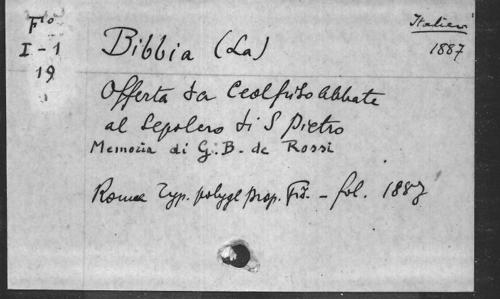 Fio
I-1
19
Italien
1887
Bibbia (La)
Offerta da Ceolfrido Abbate
al Sepolcro di S Pietro
Memoria di G. B. de Rossi
Romae Typ. polygl prop. Fid. - fol. 1887